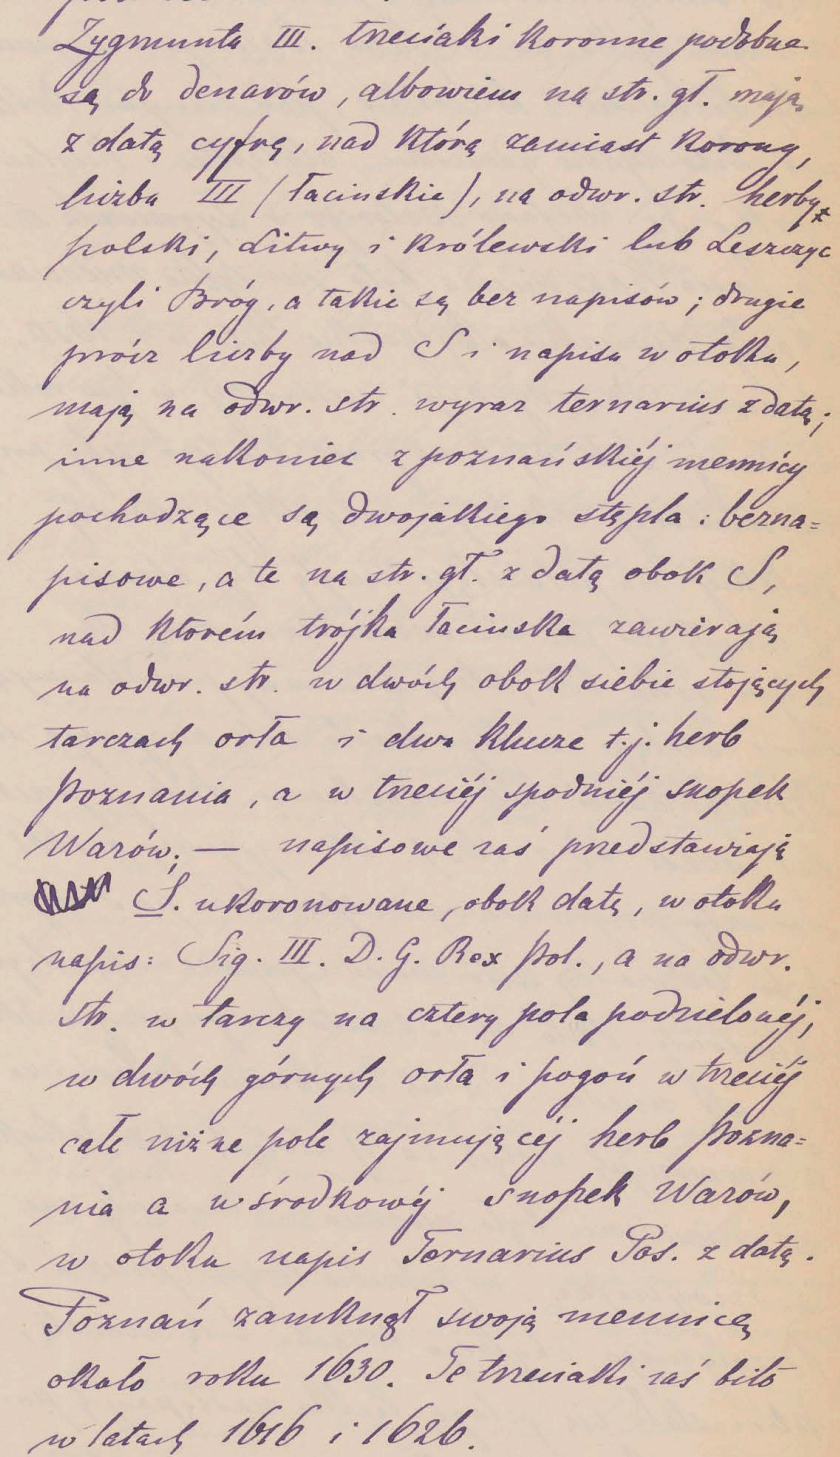 Zygmunta III. trzeciaki koronne podobne
są do denarów, albowiem na str. gł. mają
z datą cyfrę, nad którą zamiast korony,
liczba III (łacinskie), na odwr. str. herby
polski, Litwy i królewski lub Leszczyc
czyli Bróg, a takie są bez napisów; drugie
prócz liczby nad S i napisu w otoku,
mają na odwr. str. wyraz ternarius z datą;
inne nakoniec z poznańskiéj mennicy
pochodzące są dwojakiego stępla: bezna=
pisowe, a te na str. gł. z datą obok S,
nad którém trójka łacinska zawierają
na odwr. str. w dwóch obok siebie stojących
tarczach orła i dwa klucze t.j. herb
Poznania, a w trzeciéj spodniéj snopek
Wazów; — napisowe zaś przedstawiają
S. ukoronowane, obok datę, w otoku
napis: Sig. III. D. G. Rex Pol., a na odwr.
str. w tarczy na cztery pola podzielonéj,
w dwóch górnych orła i pogoń w trzeciéj
całe niższe pole zajmującéj herb Pozna=
nia a w środkowéj snopek Wazów,
w otoku napis Ternarius Pos. z datą.
Poznań zamknął swoją mennicę
około roku 1630. Te trzeciaki zaś bito
w latach 1616 i 1626.